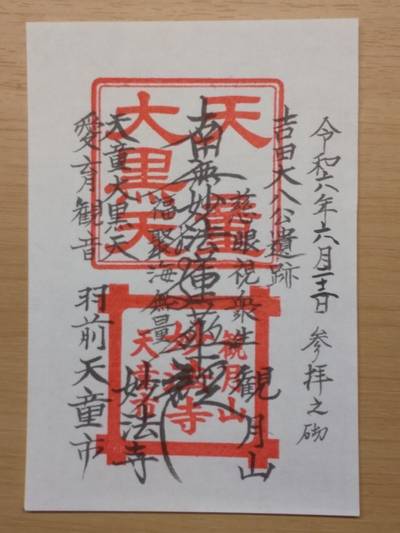 令和六年六月二十二日 参拝之砌
吉田大八公遺跡
慈眼視衆生
観月山
南無妙法蓮華経
福聚海無量
妙法寺
天童大黒天
愛育観音
羽前天童市
天童
大黒天
観月山
妙法寺